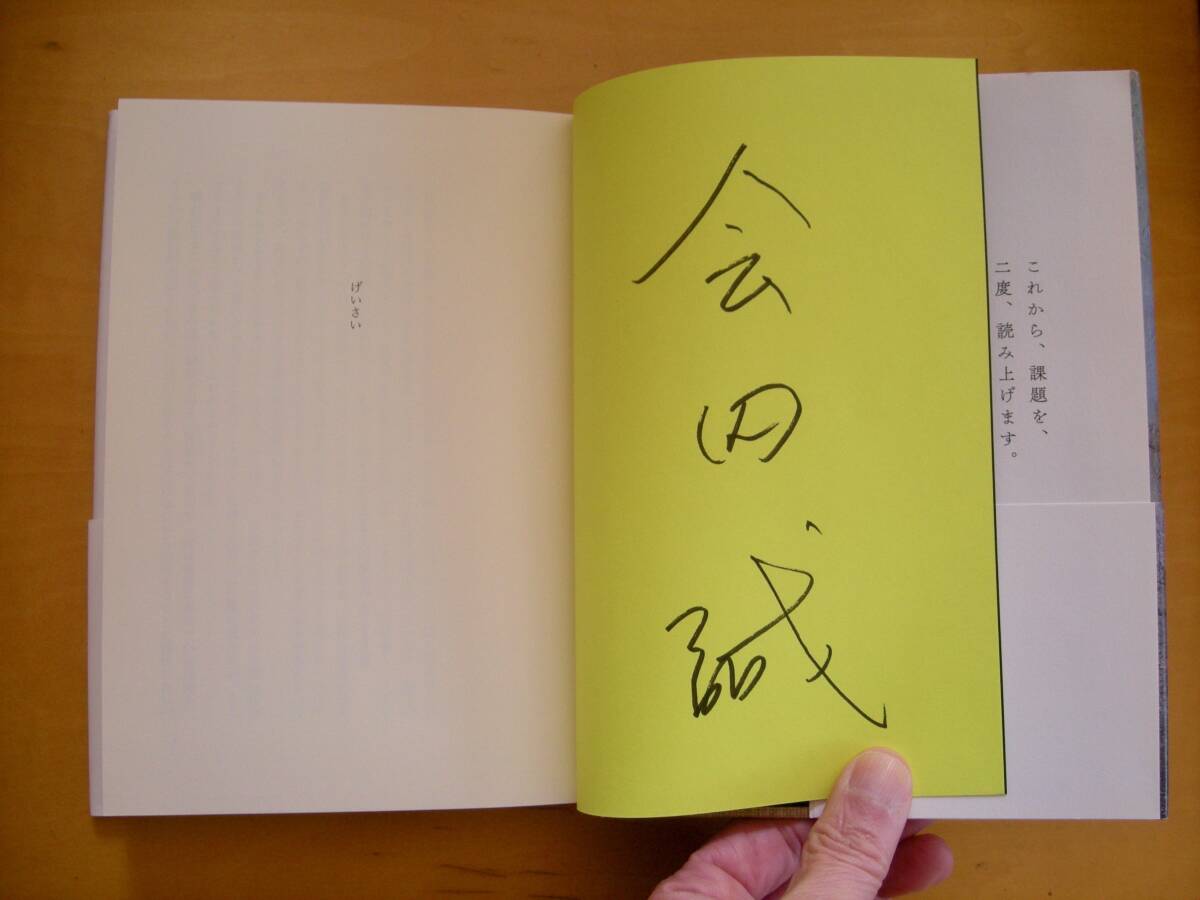 これから、課題を、
二度、読み上げます。
会田誠
げいさい